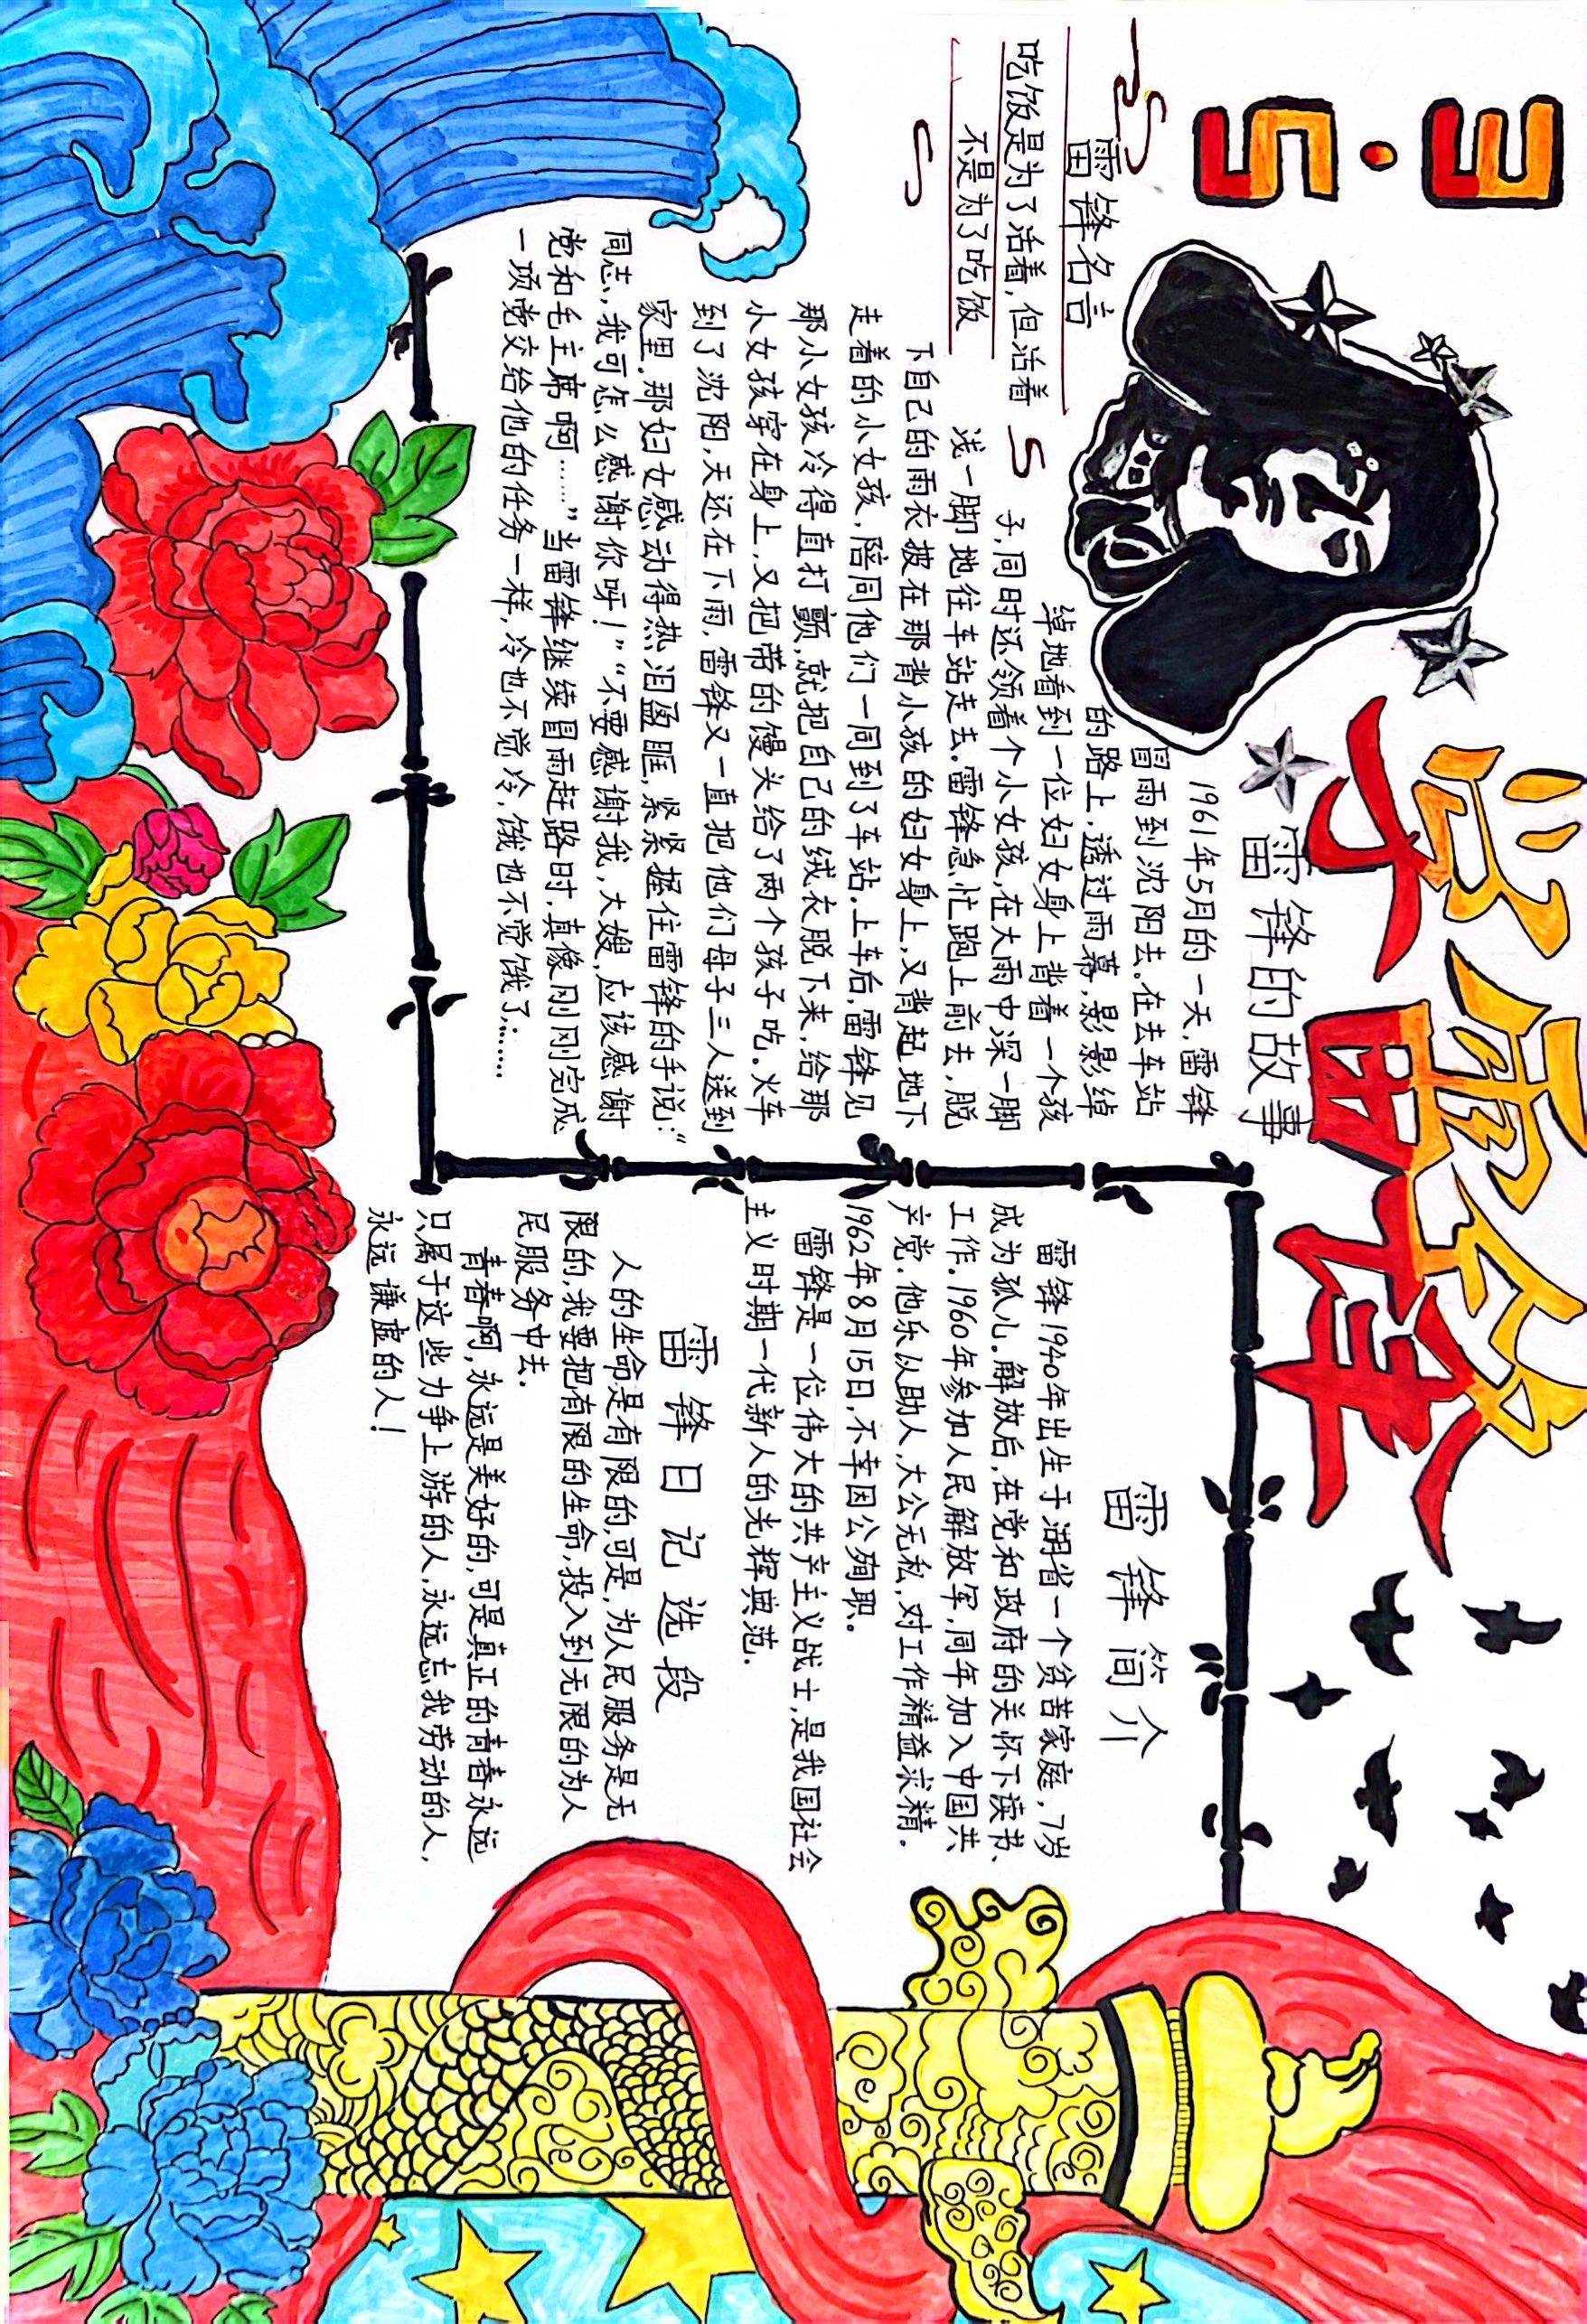 3·5
学雷锋
雷锋名言
吃饭是为了活着,但活着
不是为了吃饭
雷锋的故事
1961年5月的一天,雷锋
冒雨到沈阳去。在去车站
的路上,透过雨幕,影影绰
绰地看到一位妇女身上背着一个孩
子,同时还领着个小女孩,在大雨中深一脚
浅一脚地往车站走去。雷锋急忙跑上前去,脱
下自己的雨衣披在那背小孩的妇女身上,又背起地下
走着的小女孩,陪同他们一同到了车站。上车后,雷锋见
那小女孩冷得直打颤,就把自己的绒衣脱下来,给那
小女孩穿在身上,又把带的馒头给了两个孩子吃。火车
到了沈阳,天还在下雨,雷锋又一直把他们母子三人送到
家里。那妇女感动得热泪盈眶,紧紧握住雷锋的手说:“
同志,我可怎么感谢你呀!”“不要感谢我,大嫂,应该感谢
党和毛主席啊……”当雷锋继续冒雨赶路时,真像刚刚完成
一项党交给他的任务一样,冷也不觉冷,饿也不觉饿了……
雷锋简介
雷锋1940年出生于湖省一个贫苦家庭,7岁
成为孤儿。解放后,在党和政府的关怀下读书、
工作。1960年参加人民解放军,同年加入中国共
产党.他乐从助人,大公无私,对工作精益求精.
1962年8月15日,不幸因公殉职。
雷锋是一位伟大的共产主义战士,是我国社会
主义时期一代新人的光辉典范.
雷锋日记选段
人的生命是有限的,可是,为人民服务是无
限的,我要把有限的生命,投入到无限的为人
民服务中去.
青春啊,永远是美好的,可是真正的青春永远
只属于这些力争上游的人,永远忘我劳动的人,
永远谦虚的人!